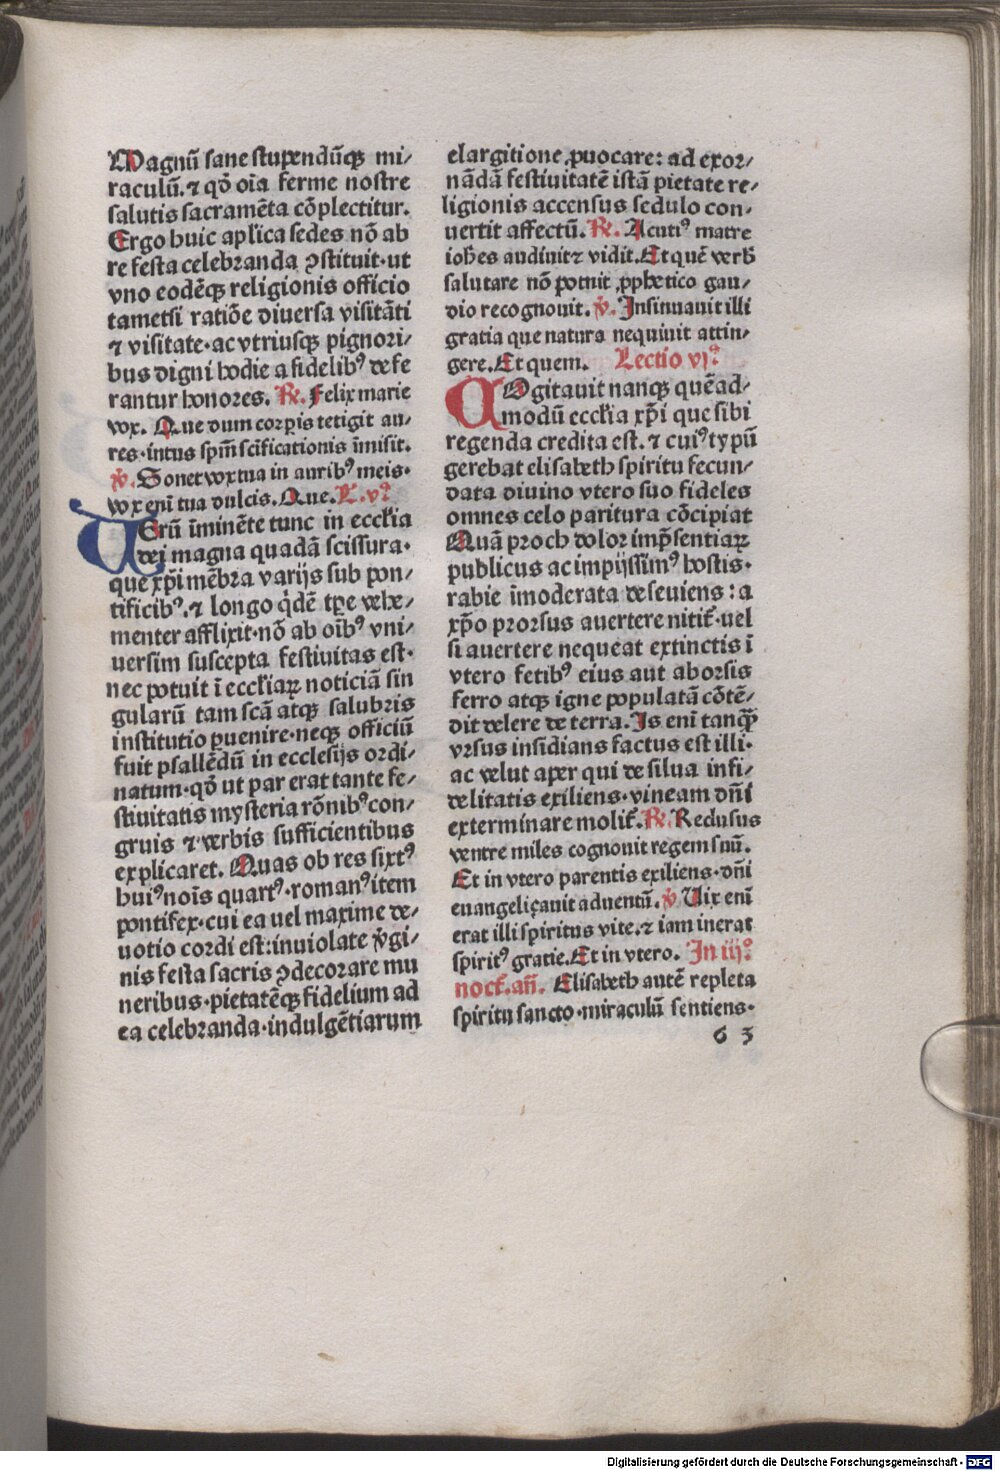 Magnū sane stupendūqꝫ mi⸗
raculū. ⁊ qď oīa ferme nostre
salutis sacramēta cōplectitur.
Ergo huic aplica sedes nō ab
re festa celebranda ꝯstituit· ut
vno eodēqꝫ religionis officio
tametsi ratiōe diuersa visitāti
⁊ visitate· ac vtriusqꝫ pignori⸗
bus digni hodie a fidelibꝰ defe
rantur honores. ℟. Felix marie
vox. Que dum corpis tetigit au⸗
res· intus spm̄ scificationis īmisit.
℣. Sonet vox tua in auribꝰ meis·
vox enī tua dulcis. Que. L. vꝰ
Uerū īminēte tunc in ecclia
dei magna quadā scissura·
que xp̄i mēbra varijs sub pon⸗
tificibꝰ. ⁊ longo q̇dē tꝑe vehe⸗
menter afflixit· nō ab oībꝰ vni⸗
uersim suscepta festiuitas est·
nec potuit ī eccliaꝝ noticiā sin
gularū tam scā atqꝫ salubris
institutio ꝑuenire· neqꝫ officiū
fuit psallēdū in ecclesijs ordi⸗
natum· qď ut par erat tante fe⸗
stiuitatis mysteria rōnibꝰ con⸗
gruis ⁊ verbis sufficientibus
explicaret. Quas ob res sixtꝰ
huiꝰ noīs quartꝰ· romanꝰ item
pontifex· cui ea uel maxime de⸗
uotio cordi est: inuiolate v̇gi⸗
nis festa sacris ꝯdecorare mu
neribus· pietatēqꝫ fidelium ad
ea celebranda· indulgētiarum
elargitione ꝓuocare: ad exor⸗
nādā festiuitatē istā pietate re⸗
ligionis accensus sedulo con⸗
uertit affectū. ℟. Acutiꝰ matre
iohēs audiuit ⁊ vidit. Et quē verb̄
salutare nō potuit ꝓphetico gau⸗
dio recognouit. ℣. Insinuauit illi
gratia que natura nequiuit attin⸗
gere. Et quem. Lectio vjꝰ
COgitauit nanqꝫ quēad⸗
modū ecclia xp̄i que sibi
regenda credita est. ⁊ cuiꝰ typū
gerebat elisabeth spiritu fecun⸗
data diuino vtero suo fideles
omnes celo paritura cōcipiat
Quā proch dolor imp̄sentiaꝝ
publicus ac impijssimꝰ hostis·
rabie īmoderata deseuiens: a
xp̄o prorsus auertere nitit̄· uel
si auertere nequeat extinctis ī
vtero fetibꝰ eius aut aborsis
ferro atqꝫ igne populatā cōtē⸗
dit delere de terra. Is enī tanqꝫ̄
vrsus insidians factus est illi·
ac velut aper qui de silua infi⸗
delitatis exiliens· vineam dn̄i
exterminare molit̄. ℟. Redusus
ventre miles cognouit regem suū.
Et in vtero parentis exiliens· dn̄i
euangeliçauit aduentū. ℣ Uix enī
erat illi spiritus vite. ⁊ iam inerat
spiritꝰ gratie. Et in vtero. In iijꝰ
noct̄. añ. Elisabeth autē repleta
spiritu sancto· miraculū sentiens·
6 3
Digitalisierung gefördert durch die Deutsche Forschungsgemeinschaft - DFG